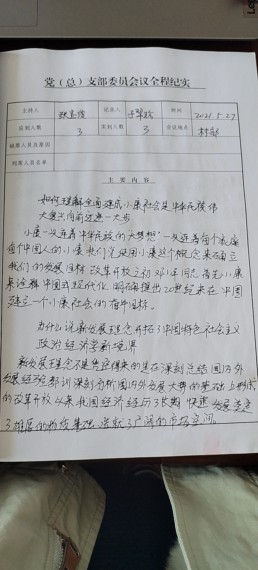 党（总）支部委员会议全程纪实
主持人 记录人 时间 2021.5.27
应到人数 3 实到人数 3 会议地点 村部
缺席人员及原因
列席人员名单
主要内容
如何理解全面建成小康社会是中华民族伟
大复兴向前迈进一大步
小康一头连着中华民族的大梦想 一头连着每个家庭
每个中国人的小康 我们党使用小康这个概念来确立
我们的发展目标 改革开放之初邓小平同志首先用小康
来诠释中国式现代化 明确提出20世纪末在中国
建立一个小康社会的奋斗目标。
为什么说新发展理念开拓了中国特色社会主义
政治经济学新境界
新发展理念不是凭空得来的 是在深刻总结国内外
发展经验教训 深刻分析国内外发展大势的基础上形成
的 改革开放以来我国经济经历了长期快速发展
了雄厚的物质基础 了广阔的市场空间。